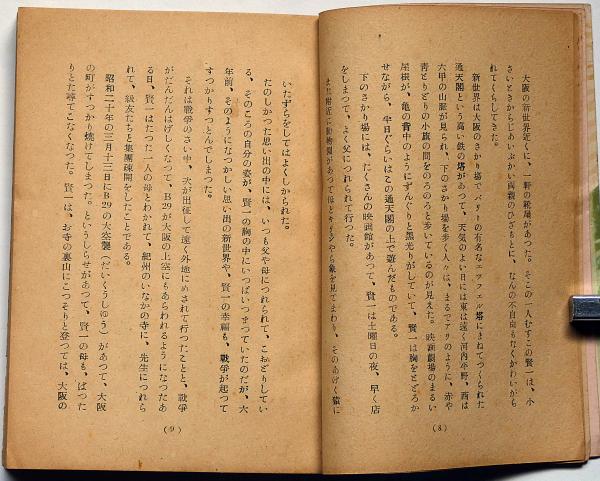 大阪の新世界近くに、一軒の靴場があつた。そこの一人むすこの賢一は、小
さいときからじあいぶかい両親のひざもとに、なんの不自由もなくかわいがら
れてくらしてきた。
新世界は大阪のさかり場で パリーの有名なエッフェル塔にまねてつくられた
通天閣という高い鉄の塔があつて、天気のよい日には東は遠く河内平野、西は
六甲の山脈が見られ、下のさかり場を歩く人々は、まるでアリのように、赤や
青とりどりの小旗の間をのろのろと歩いているのが見えた。映画劇場のまるい
屋根が、亀の背中のようにずんぐりと黒光りがしていて、賢一は胸をとどろか
せながら、半日ぐらいはこの通天閣の上で遊んだものである。
下のさかり場には、たくさんの映画館があつて、賢一は土曜日の夜、早く店
をしまつて、よく父につれられて行つた。
また附近に動物園があつて母とキリンや象を見てまわり、そのあげく猿に
(8)
いたずらをしてはよくしかられた。
たのしかつた思い出の中には、いつも父や母につれられて、こおどりしてい
る、そのころの自分の姿が、賢一の胸の中にいつぱいつまつていたのだが、六
年前、そのようになつかしい思い出の新世界や、賢一の幸福も、戦争が起つて
すつかりすつとんでしまつた。
それは戦争のさい中、父が出征して遠く外地にめされて行つたことと、戦争
がだんだんはげしくなつて、B29が大阪の上空にもあらわれるようになつたあ
る日、賢一はたつた一人の母とわかれて、紀州のいなかの寺に、先生につれら
れて、級友たちと集團疎開をしたことである。
昭和二十年の三月十三日にB29の大空襲(だいくうしゆう)があつて、大阪
の町がすつかり焼けてしまつた。というしらせがあつて、賢一の母も、ぱつた
りとた尋てこなくなつた。賢一は、お寺の裏山にこつそりと登つては、大阪の
(9)